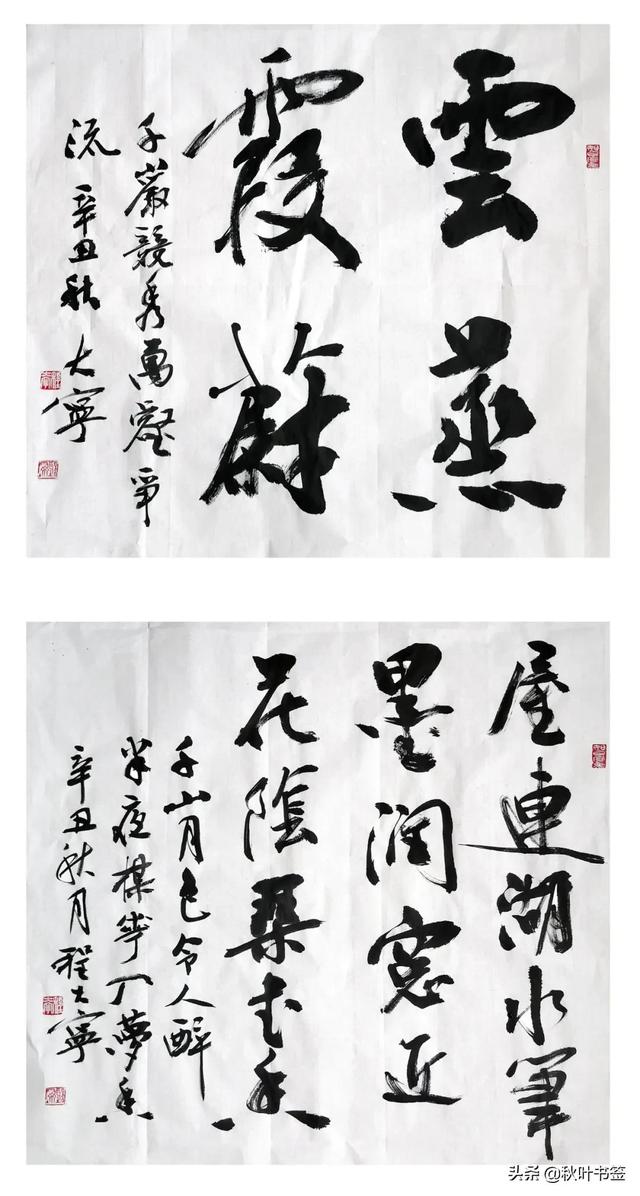 雲蒸
霞蔚
千巖競秀萬壑爭
流 辛丑秋 大寧
屋連湖水筆
墨潤窓近
花陰琴書香
千山月色令人醉
半夜楳華入夢香
辛丑秋月 程大寧
头条 @秋叶书签